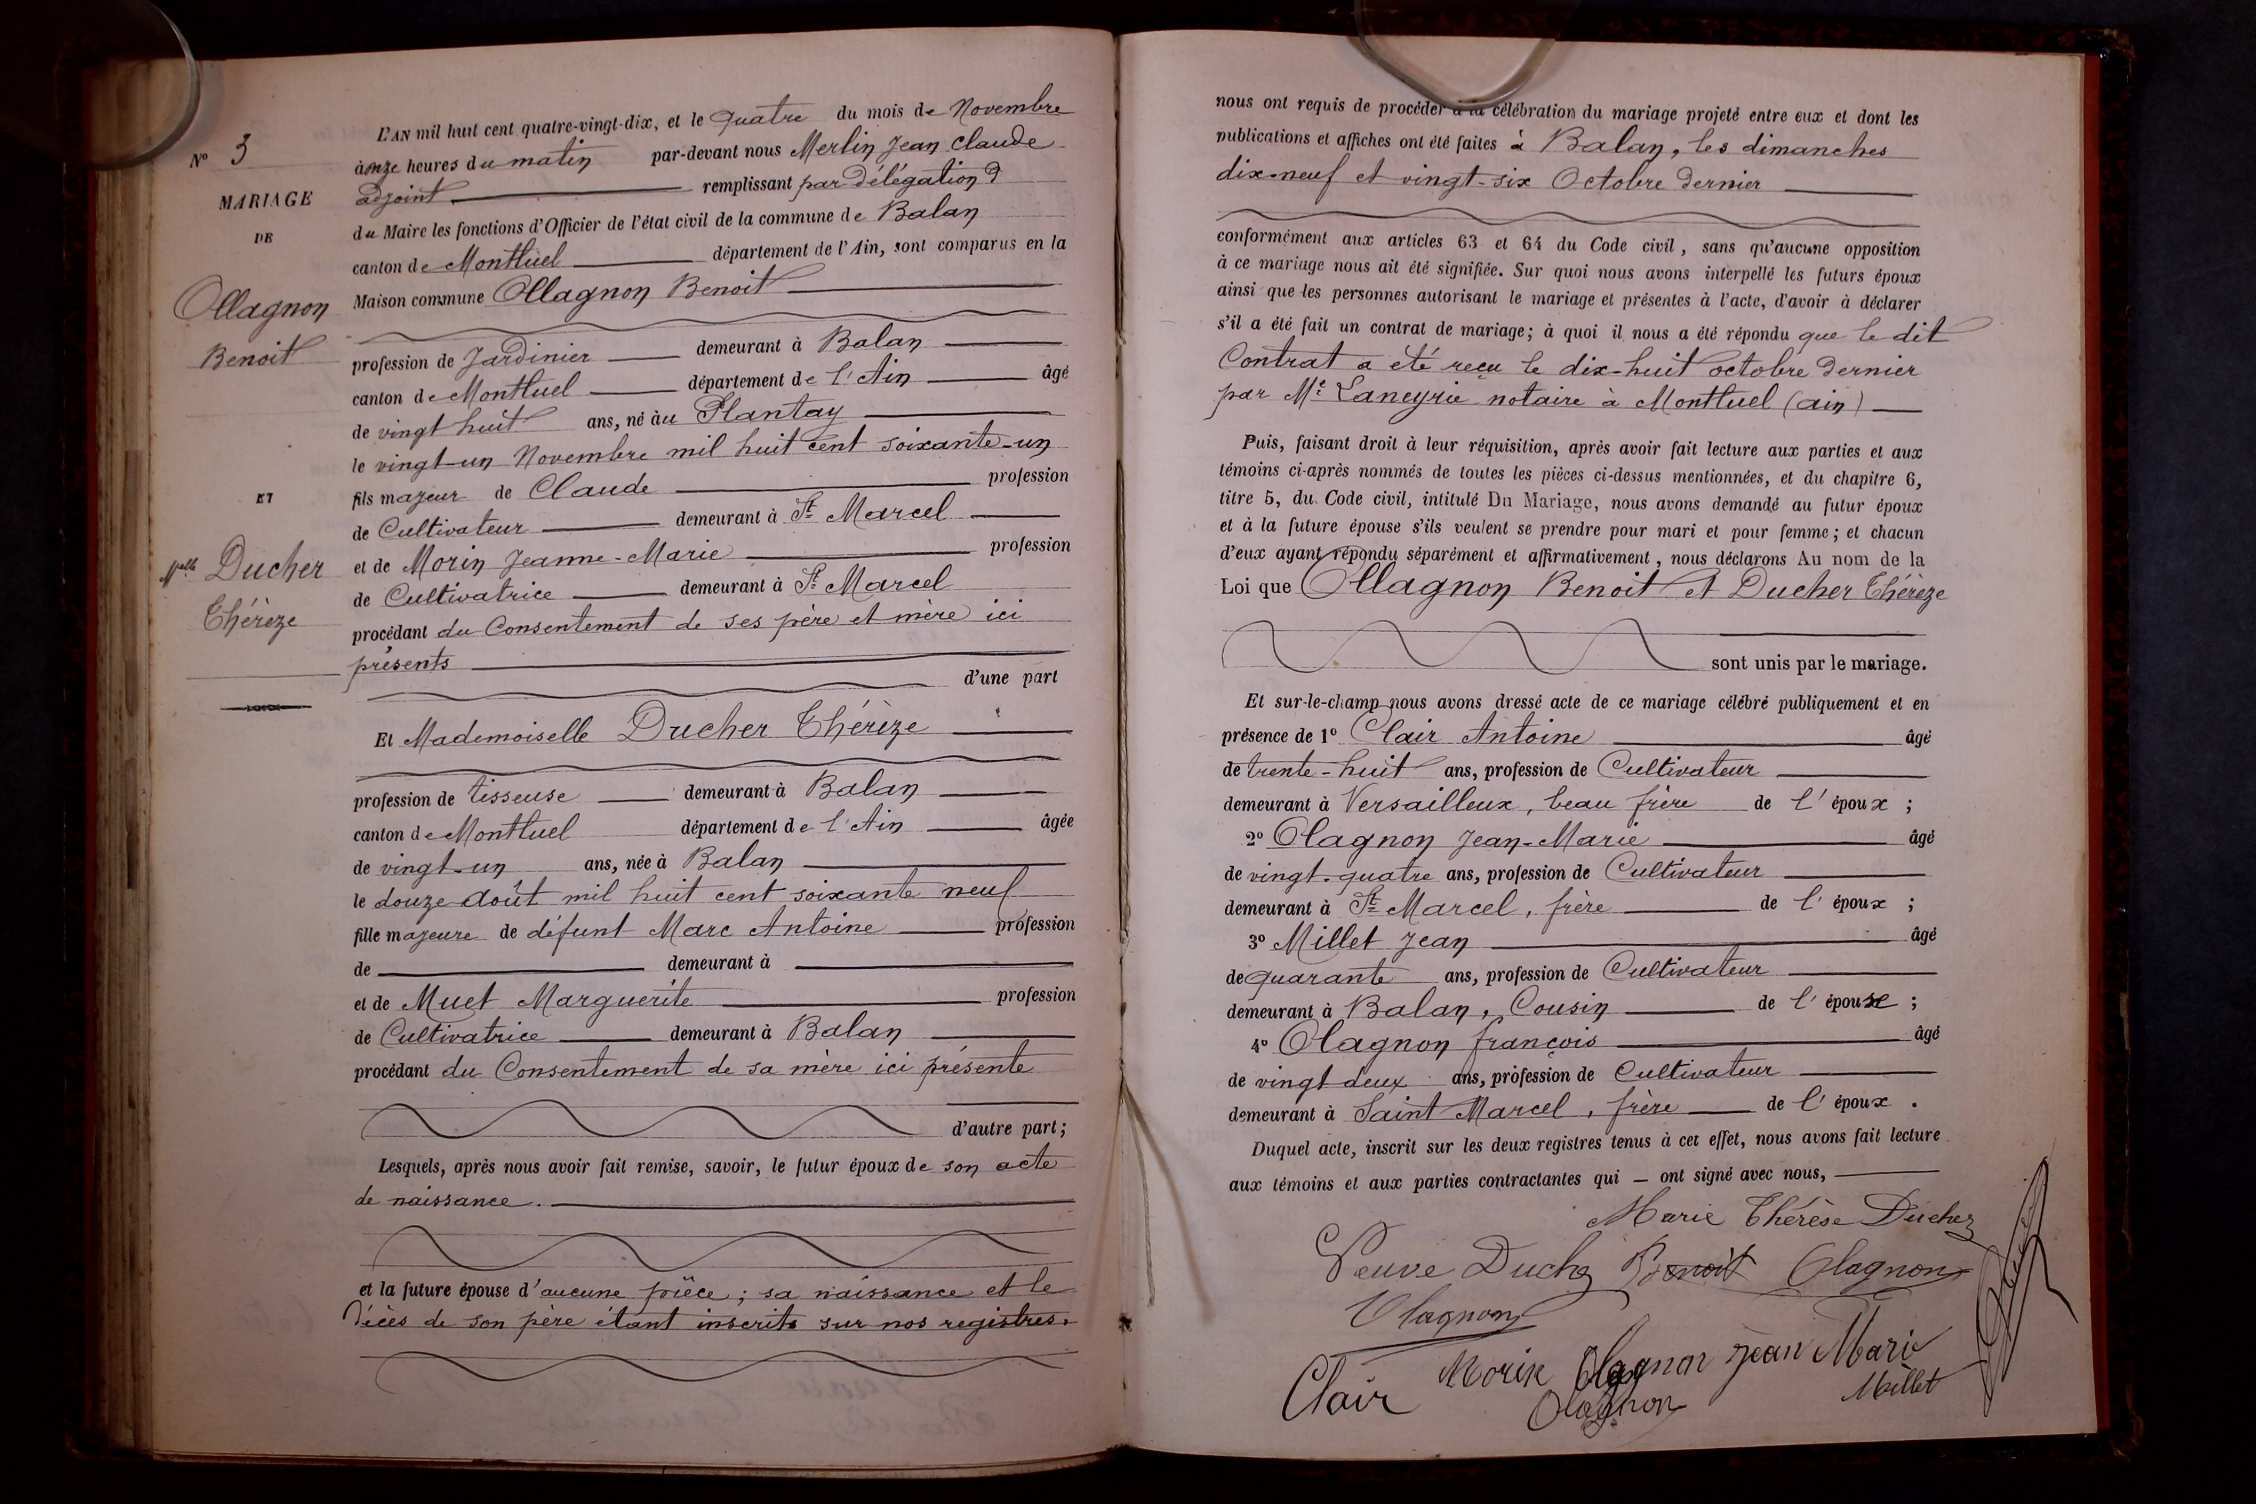 N° 3
MARIAGE
DE
Ollagnon
Benoit
ET
Melle Ducher
Thérèze
L'AN mil huit cent quatre-vingt-dix, et le quatre du mois de Novembre
à onze heures du matin par-devant nous Merlin Jean Claude
adjoint remplissant par délégation
du Maire les fonctions d'Officier de l'état civil de la commune de Balan
canton de Montluel département de l'Ain, sont comparus en la
Maison commune Ollagnon Benoit
profession de Jardinier demeurant à Balan
canton de Montluel département de l'Ain âgé
de vingt huit ans, né àu Plantay
le vingt-un Novembre mil huit cent soixante-un
fils majeur de Claude profession
de Cultivateur demeurant à St Marcel
et de Morin Jeanne-Marie profession
de Cultivatrice demeurant à St Marcel
procédant du Consentement de ses père et mère ici
présents
d'une part
Et Mademoiselle Ducher Thérèze
profession de tisseuse demeurant à Balan
canton de Montluel département de l'Ain âgée
de vingt-un ans, née à Balan
le douze Août mil huit cent soixante neuf
fille majeure de défunt Marc Antoine profession
de demeurant à
et de Muet Marguerite profession
de Cultivatrice demeurant à Balan
procédant du Consentement de sa mère ici présente
d'autre part;
Lesquels, après nous avoir fait remise, savoir, le futur époux de son acte
de naissance.
et la future épouse d'aucune pièce; sa naissance et le
décès de son père étant inscrits sur nos registres.
nous ont requis de procéder à la célébration du mariage projeté entre eux et dont les
publications et affiches ont été faites à Balan, les dimanches
dix-neuf et vingt-six Octobre dernier
conformément aux articles 63 et 64 du Code civil, sans qu'aucune opposition
à ce mariage nous ait été signifiée. Sur quoi nous avons interpellé les futurs époux
ainsi que les personnes autorisant le mariage et présentes à l'acte, d'avoir à déclarer
s'il a été fait un contrat de mariage; à quoi il nous a été répondu que le dit
Contrat a été reçu le dix-huit octobre dernier
par Me Laneyrie notaire à Montluel (ain)
Puis, faisant droit à leur réquisition, après avoir fait lecture aux parties et aux
témoins ci-après nommés de toutes les pièces ci-dessus mentionnées, et du chapitre 6,
titre 5, du Code civil, intitulé Du Mariage, nous avons demandé au futur époux
et à la future épouse s'ils veulent se prendre pour mari et pour femme; et chacun
d'eux ayant répondu séparément et affirmativement, nous déclarons Au nom de la
Loi que Ollagnon Benoit et Ducher Thérèze
sont unis par le mariage.
Et sur-le-champ nous avons dressé acte de ce mariage célébré publiquement et en
présence de 1° Clair Antoine âgé
de trente-huit ans, profession de Cultivateur
demeurant à Versailleux, beau frère de l'époux;
2° Olagnon Jean-Marie âgé
de vingt-quatre ans, profession de Cultivateur
demeurant à St Marcel, frère de l'époux;
3° Millet Jean âgé
de quarante ans, profession de Cultivateur
demeurant à Balan, Cousin de l'épouse;
4° Olagnon françois âgé
de vingt deux ans, profession de Cultivateur
demeurant à Saint Marcel, frère de l'époux.
Duquel acte, inscrit sur les deux registres tenus à cet effet, nous avons fait lecture
aux témoins et aux parties contractantes qui ont signé avec nous,
Marie Thérèse Ducher
Veuve Ducher Benoit Olagnon
Olagnon
Morin Olagnon jean Marie
Clair Olagnon Millet